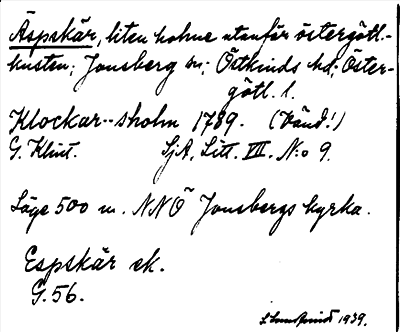 Äspskär, liten holme utanför östergötl.-
kusten; Jonsberg sn; Östkinds hd; Öster-
götl. l.
Klockar--sholm 1789. (Vänd!)
G. Klint. SjA, Litt. VII. N:o 9.
Läge 500 m. NNÖ Jonsbergs kyrka.
Espskär ek.
G. 56.
1939.